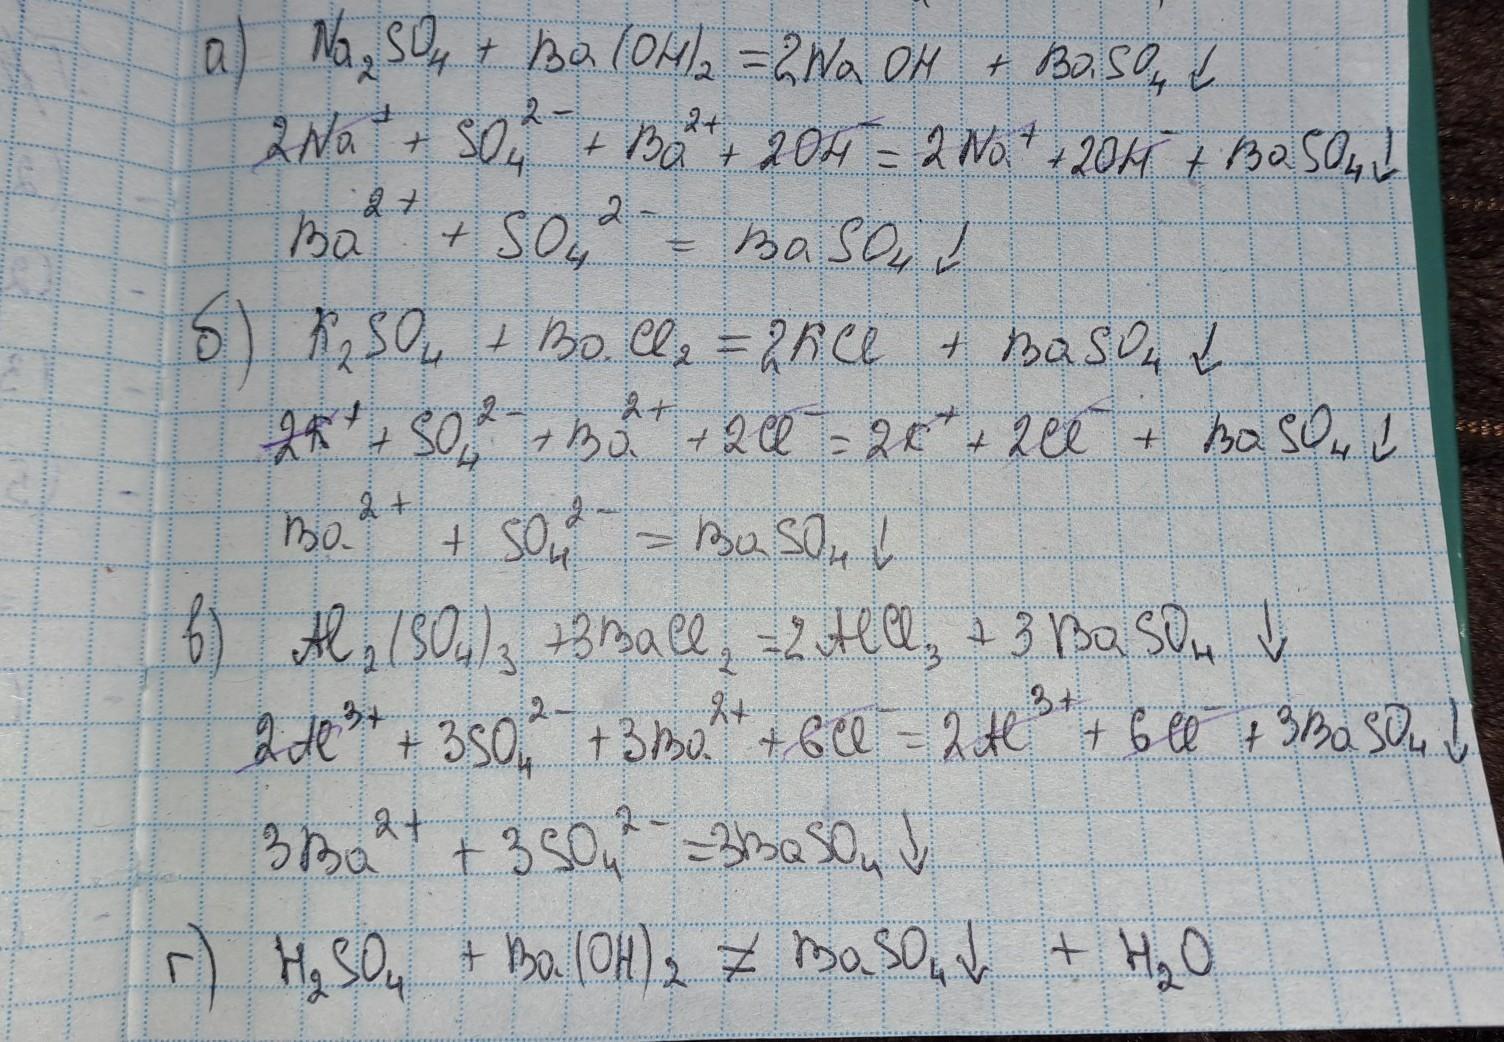 а) Na₂SO₄ + Ba(OH)₂ = 2NaOH + BaSO₄↓
2Na⁺ + SO₄²⁻ + Ba²⁺ + 2OH⁻ = 2Na⁺ + 2OH⁻ + BaSO₄↓
Ba²⁺ + SO₄²⁻ = BaSO₄↓
б) K₂SO₄ + BaCl₂ = 2KCl + BaSO₄↓
2K⁺ + SO₄²⁻ + Ba²⁺ + 2Cl⁻ = 2K⁺ + 2Cl⁻ + BaSO₄↓
Ba²⁺ + SO₄²⁻ = BaSO₄↓
в) Al₂(SO₄)₃ + 3BaCl₂ = 2AlCl₃ + 3BaSO₄↓
2Al³⁺ + 3SO₄²⁻ + 3Ba²⁺ + 6Cl⁻ = 2Al³⁺ + 6Cl⁻ + 3BaSO₄↓
3Ba²⁺ + 3SO₄²⁻ = 3BaSO₄↓
г) H₂SO₄ + Ba(OH)₂ ≠ BaSO₄↓ + H₂O